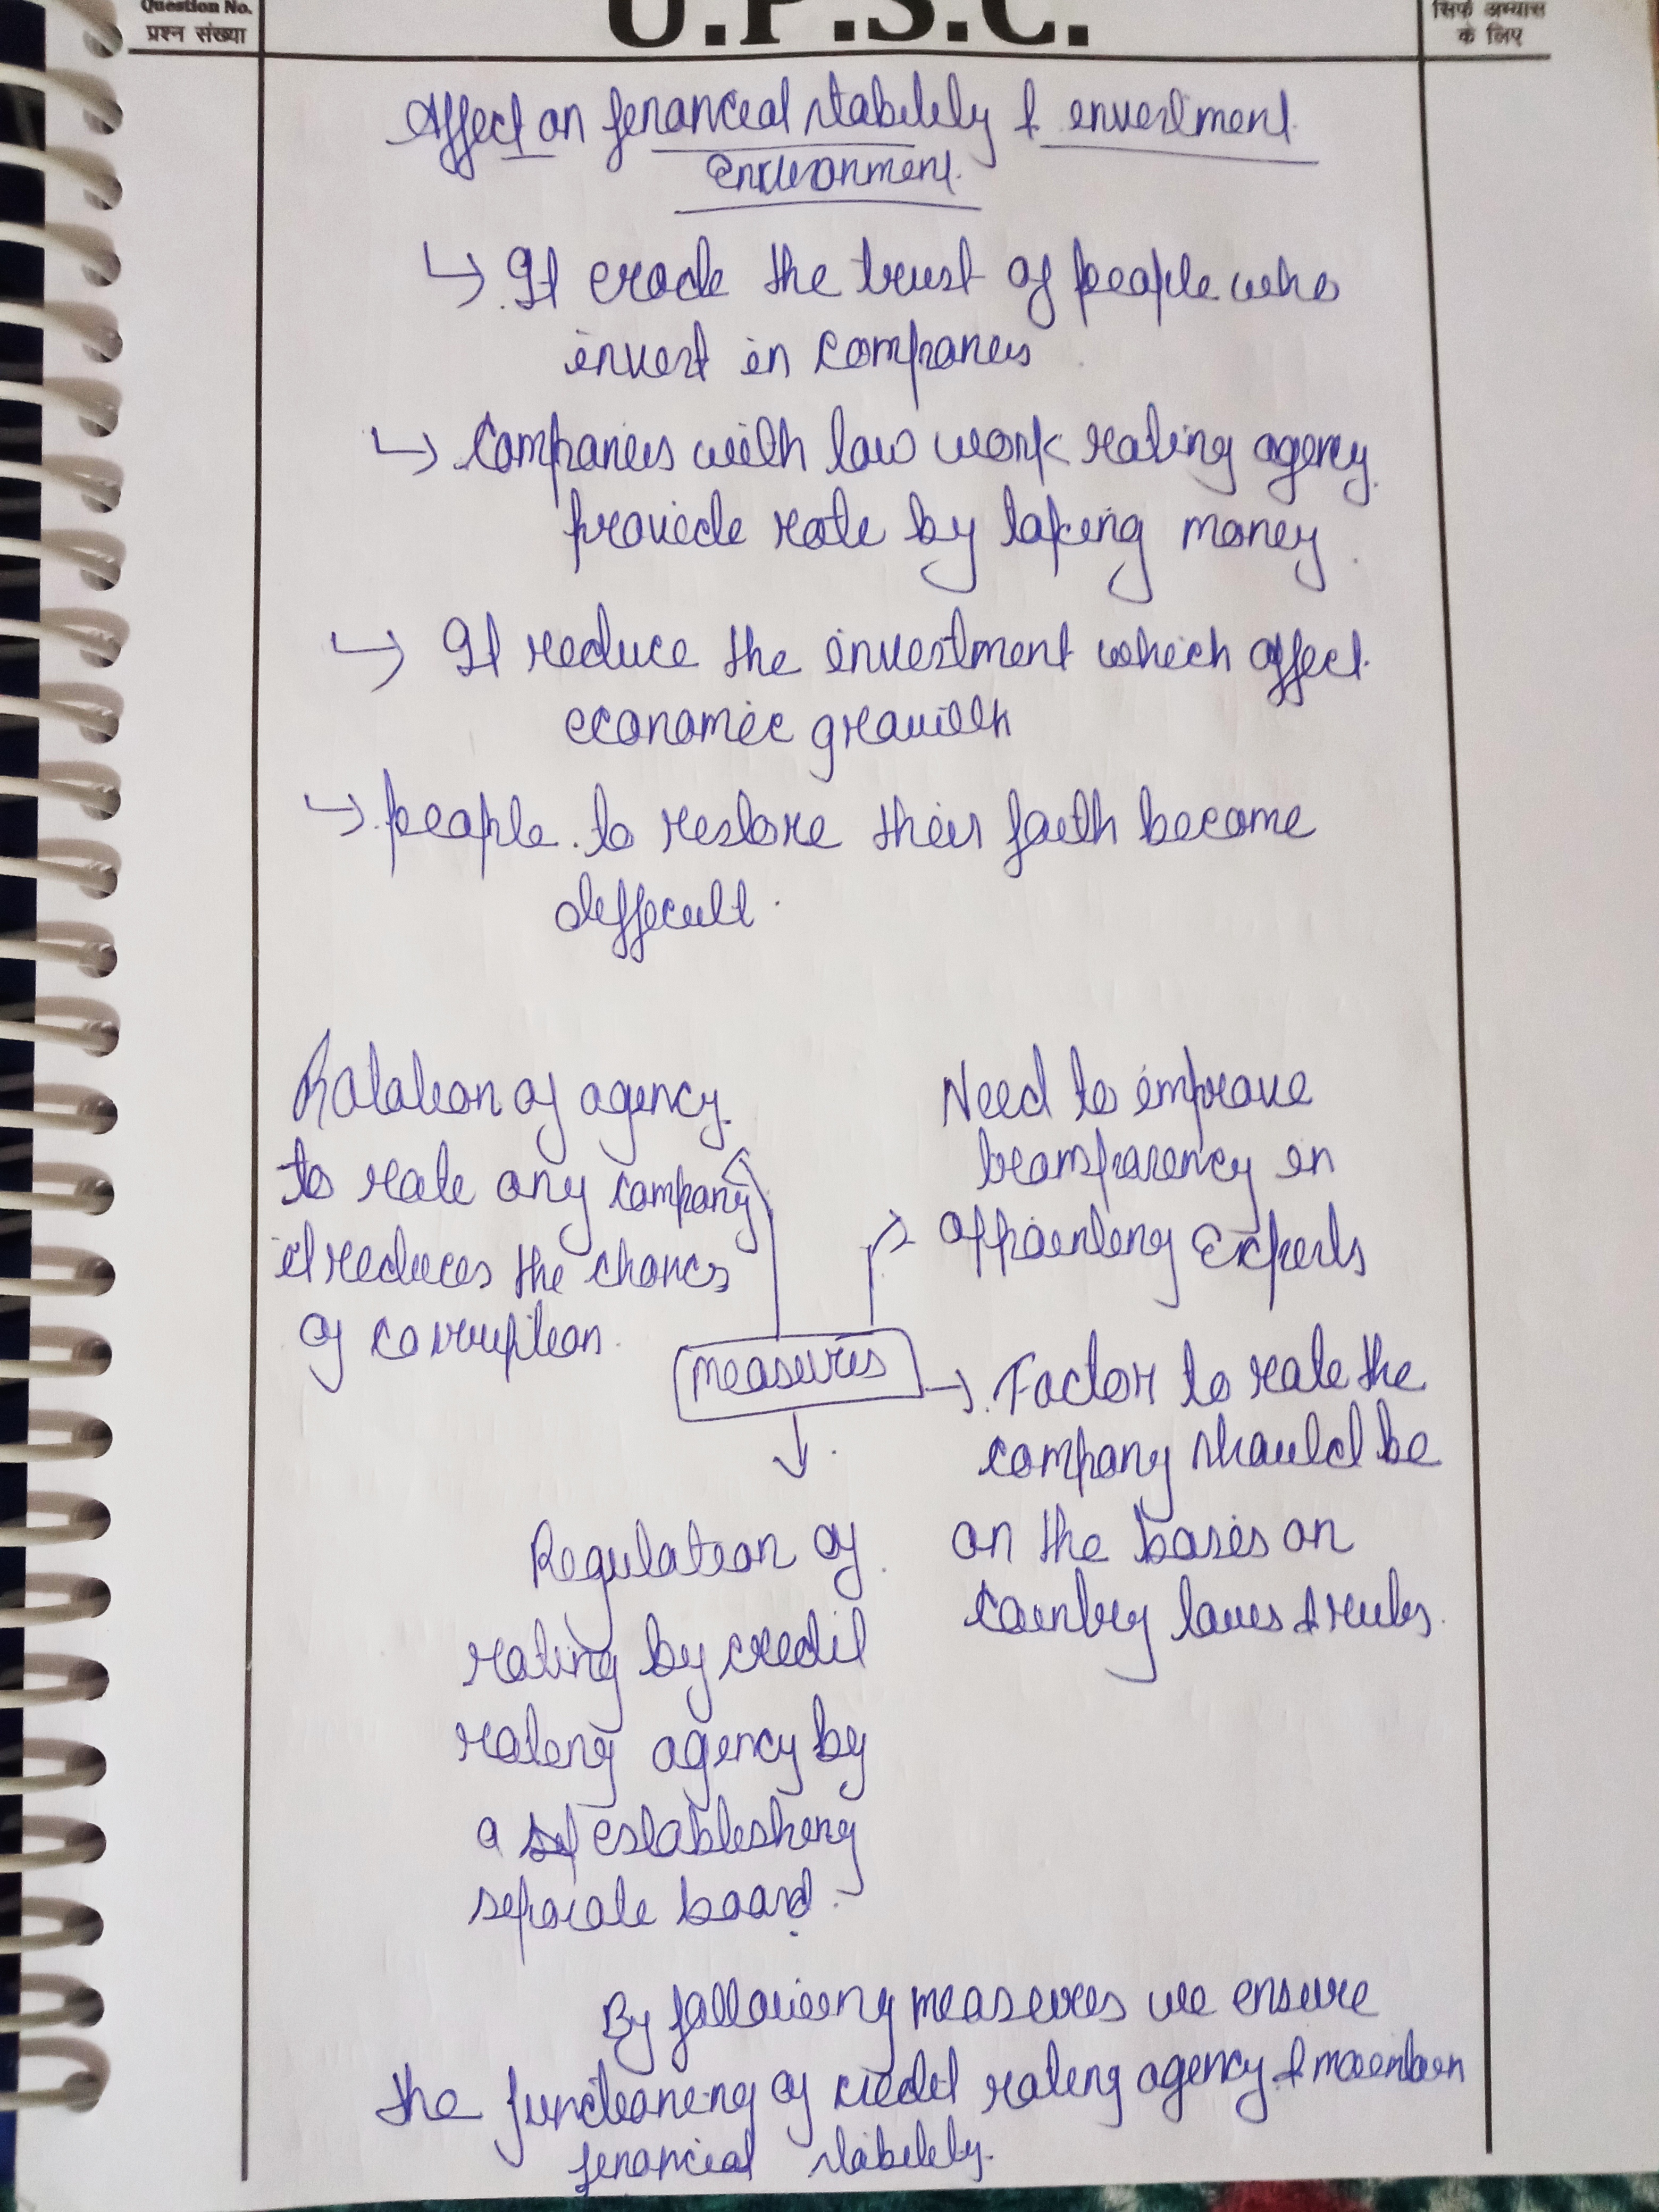 Question No.
प्रश्न संख्या
U.P.S.C.
सिर्फ अभ्यास
के लिए
Affect on financial stability & investment
Environment.
↳ It erode the trust of people who
invest in companies
↳ Companies with low work rating agency
provide rate by taking money.
↳ It reduce the investment which affect
economic growth
↳ people to restore their faith become
difficult.
Rotation of agency
to rate any company
it reduces the chances
of corruption.
Need to improve
transparency in
appointing Experts
measures
→ Factor to rate the
company should be
on the basis on
country laws & rules.
Regulation of
rating by credit
rating agency by
a establishing
separate board.
By following measures we ensure
the functioning of credit rating agency & maintain
financial stability.